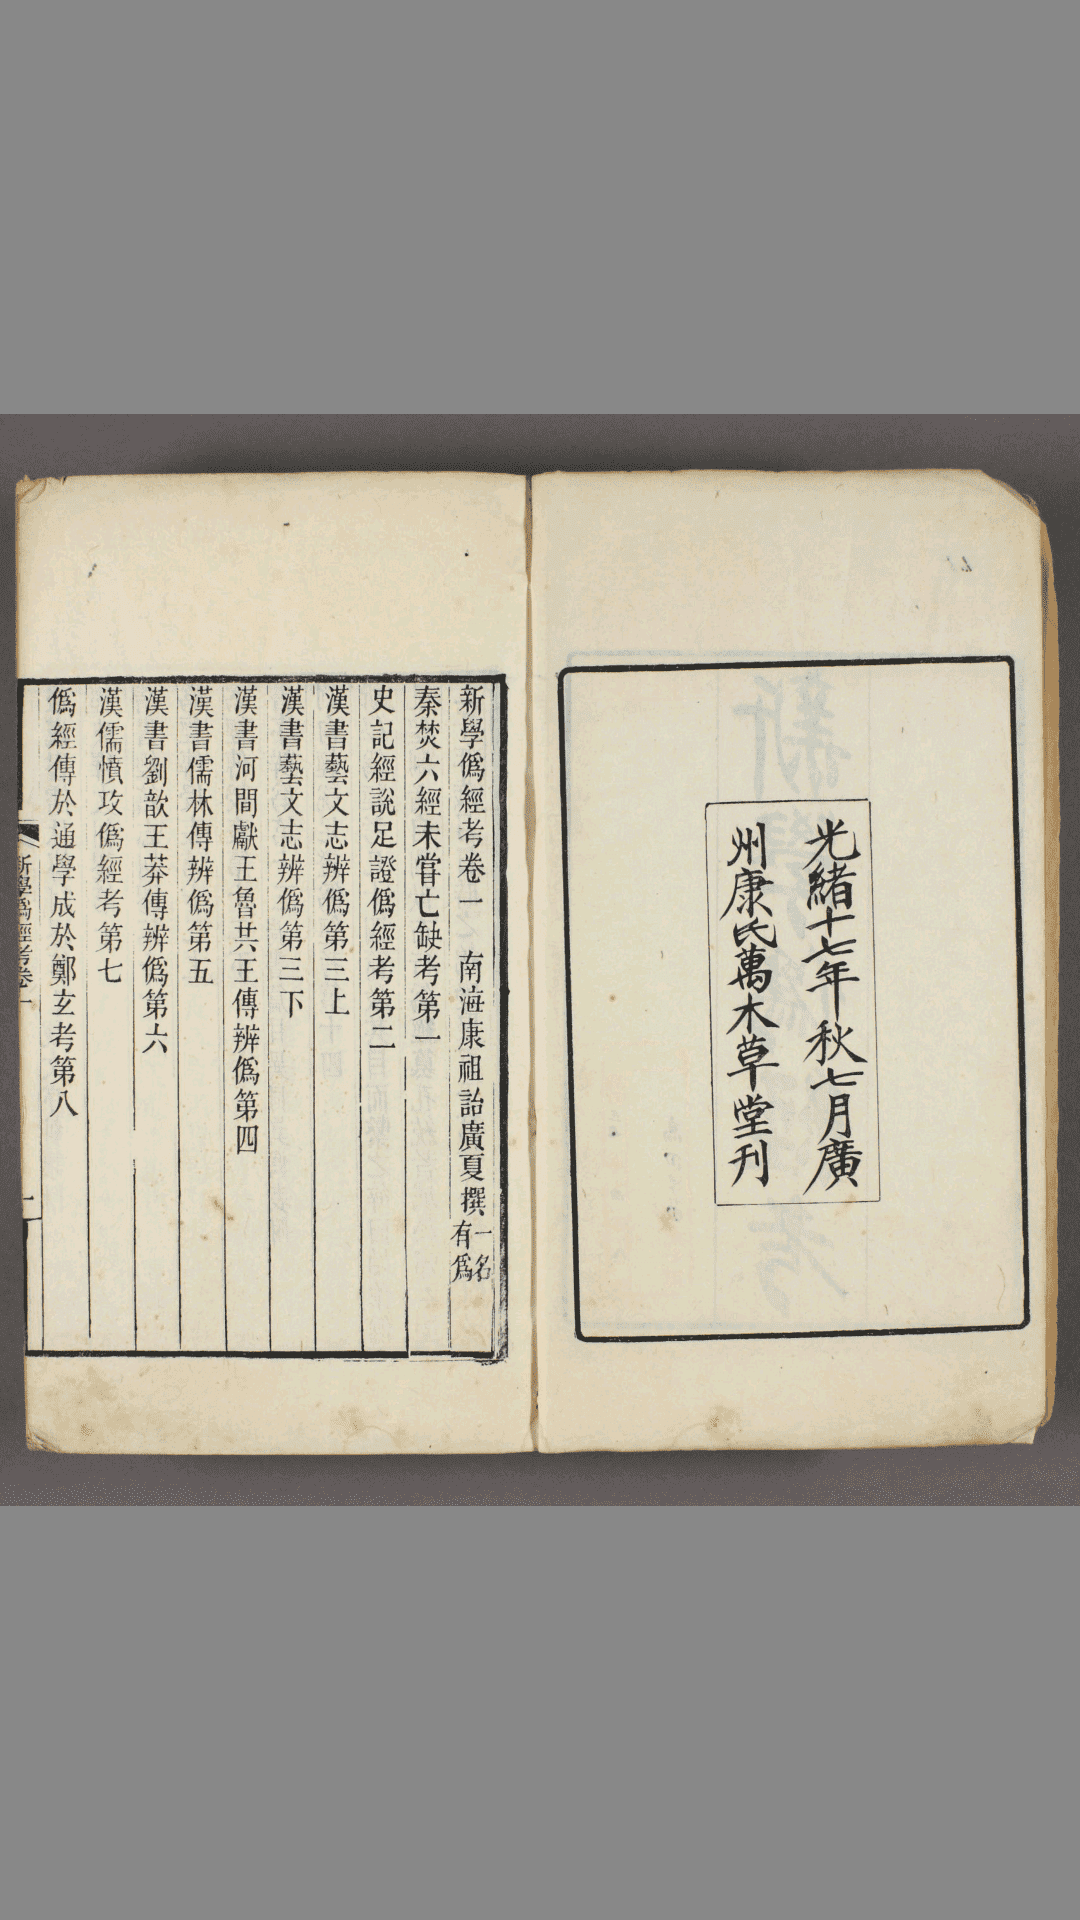 光緒十七年秋七月廣
州康氏萬木草堂刊
新學僞經考卷一　南海康祖詒廣夏撰一名有爲
秦焚六經未嘗亡缺考第一
史記經說足證僞經考第二
漢書藝文志辨僞第三上
漢書藝文志辨僞第三下
漢書河間獻王魯共王傳辨僞第四
漢書儒林傳辨僞第五
漢書劉歆王莽傳辨僞第六
漢儒憤攻僞經考第七
僞經傳於通學成於鄭玄考第八
新學僞經考卷一
一